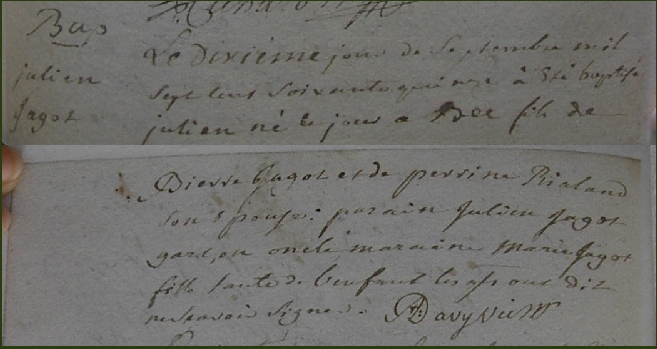 Bap
julien
Jagot
Le dixième jour de Septembre mil
sept cens soixante quinze à été baptisé
julien né ce jour a Bee fils de
Pierre Jagot et de perrine Rialand
son épouse: parain Julien Jagot
garçon oncle maraine Marie Jagot
fille tante de l'enfant lesqls ont dit
ne scavoir signer.